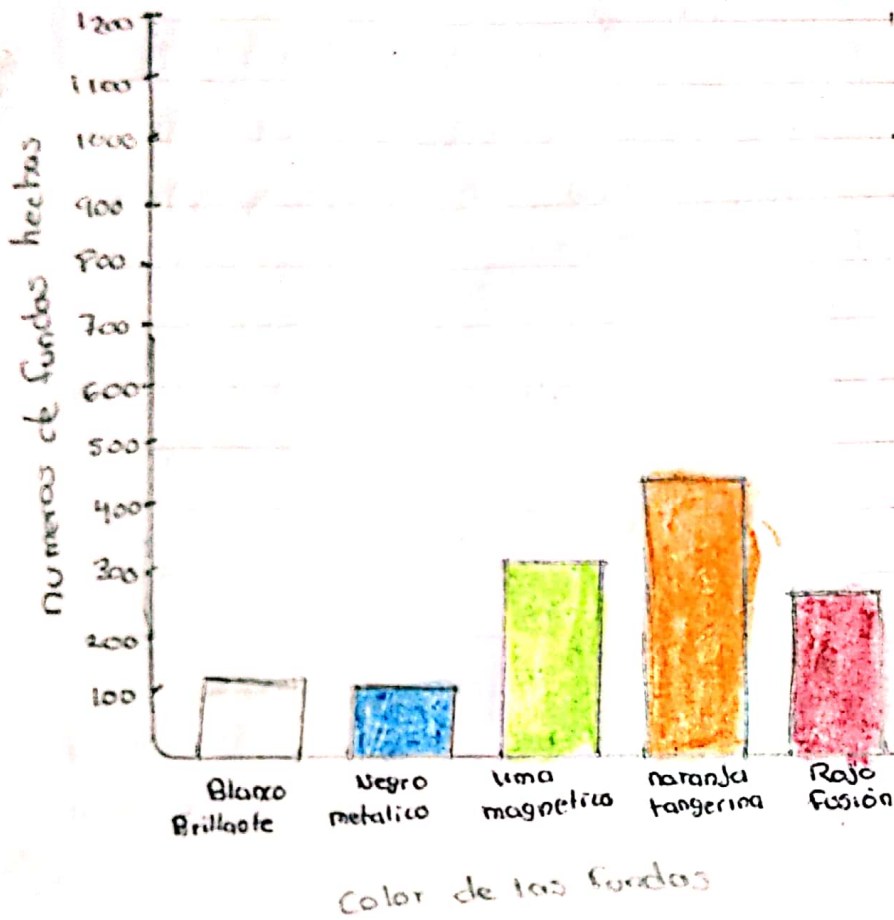 1200
1100
1000
900
800
700
600
500
400
300
200
100
numeros de fundas hechas
Blanco
Brillante
Negro
metalico
Lima
magnetico
naranja
tangerina
Rojo
Fusión
Color de las fundas